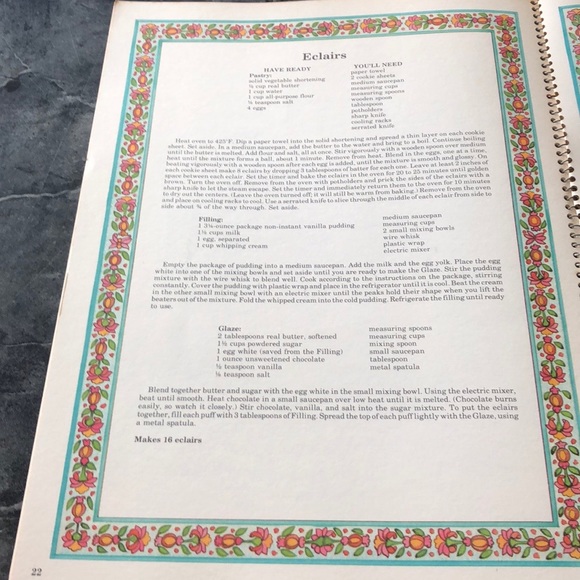 Eclairs
HAVE READY
Pastry:
solid vegetable shortening
½ cup real butter
1 cup water
1 cup all-purpose flour
¼ teaspoon salt
4 eggs
YOU'LL NEED
paper towel
2 cookie sheets
medium saucepan
measuring cups
measuring spoons
wooden spoon
tablespoon
potholders
sharp knife
cooling racks
serrated knife
Heat oven to 425°F. Dip a paper towel into the solid shortening and spread a thin layer on each cookie
sheet. Set aside. In a medium saucepan, add the butter to the water and bring to a boil. Continue boiling
until the butter is melted. Add flour and salt, all at once. Stir vigorously with a wooden spoon over medium
heat until the mixture forms a ball, about 1 minute. Remove from heat. Blend in the eggs, one at a time,
beating vigorously with a wooden spoon after each egg is added, until the mixture is smooth and glossy. On
each cookie sheet make 8 eclairs by dropping 3 tablespoons of batter for each one. Leave at least 2 inches of
space between each eclair. Set the timer and bake the eclairs in the oven for 20 to 25 minutes until golden
brown. Turn the oven off. Remove from the oven with potholders and prick the sides of the eclairs with a
sharp knife to let the steam escape. Set the timer and immediately return them to the oven for 10 minutes
to dry out the centers. (Leave the oven turned off; it will still be warm from baking.) Remove from the oven
and place on cooling racks to cool. Use a serrated knife to slice through the middle of each eclair from side to
side about ¾ of the way through. Set aside.
Filling:
1 3¼-ounce package non-instant vanilla pudding
1½ cups milk
1 egg, separated
1 cup whipping cream
medium saucepan
measuring cups
2 small mixing bowls
wire whisk
plastic wrap
electric mixer
Empty the package of pudding into a medium saucepan. Add the milk and the egg yolk. Place the egg
white into one of the mixing bowls and set aside until you are ready to make the Glaze. Stir the pudding
mixture with the wire whisk to blend well. Cook according to the instructions on the package, stirring
constantly. Cover the pudding with plastic wrap and place in the refrigerator until it is cool. Beat the cream
in the other small mixing bowl with an electric mixer until the peaks hold their shape when you lift the
beaters out of the mixture. Fold the whipped cream into the cold pudding. Refrigerate the filling until ready
to use.
Glaze:
2 tablespoons real butter, softened
1⅓ cups powdered sugar
1 egg white (saved from the Filling)
1 ounce unsweetened chocolate
½ teaspoon vanilla
⅛ teaspoon salt
measuring spoons
measuring cups
mixing spoon
small saucepan
tablespoon
metal spatula
Blend together butter and sugar with the egg white in the small mixing bowl. Using the electric mixer,
beat until smooth. Heat chocolate in a small saucepan over low heat until it is melted. (Chocolate burns
easily, so watch it closely.) Stir chocolate, vanilla, and salt into the sugar mixture. To put the eclairs
together, fill each puff with 3 tablespoons of Filling. Spread the top of each puff lightly with the Glaze, using
a metal spatula.
Makes 16 eclairs
22